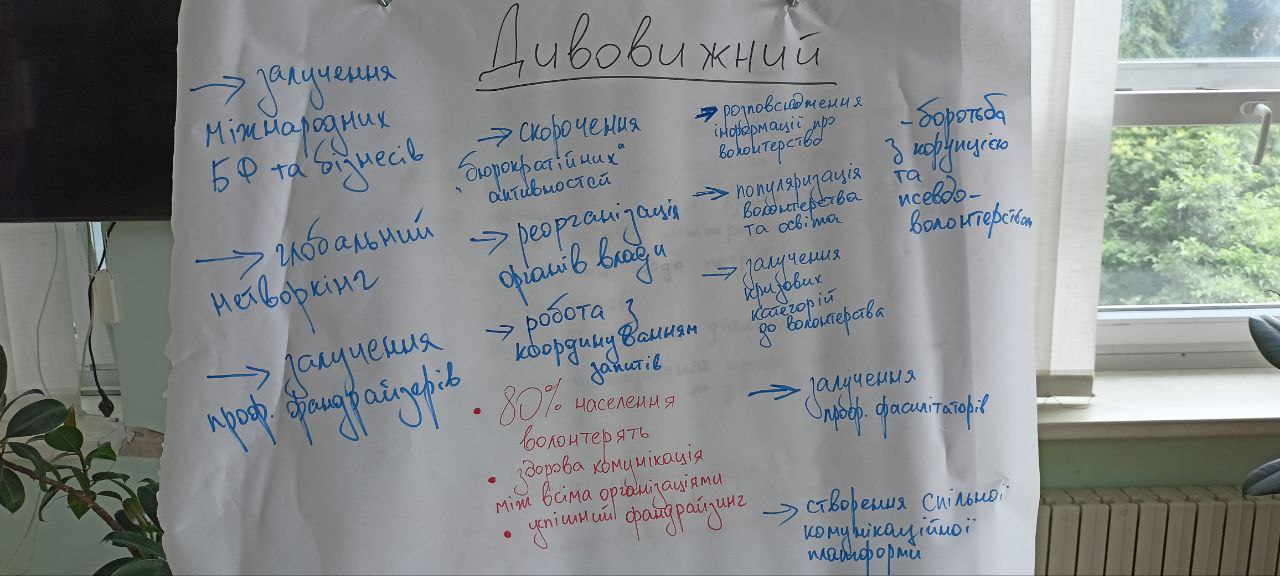 Дивовижний
→ залучення
міжнародних
БФ та бізнесів
→ глобальний
нетворкінг
→ залучення
проф. фандрайзерів
→ скорочення
„бюрократійних"
активностей
→ реорганізація
органів влади
→ робота з
координуванням
запитів
• 80% населення
волонтерять
• здорова комунікація
між всіма організаціями
• успішний фандрайзинг
→ розповсюдження
інформації про
волонтерство
→ популяризація
волонтерства
та освіта
→ залучення
кризових
категорій
до волонтерства
→ залучення
проф. фасилітаторів
→ створення спільної
комунікаційної
платформи
- боротьба
з корупцією
та
псевдо-
волонтерством